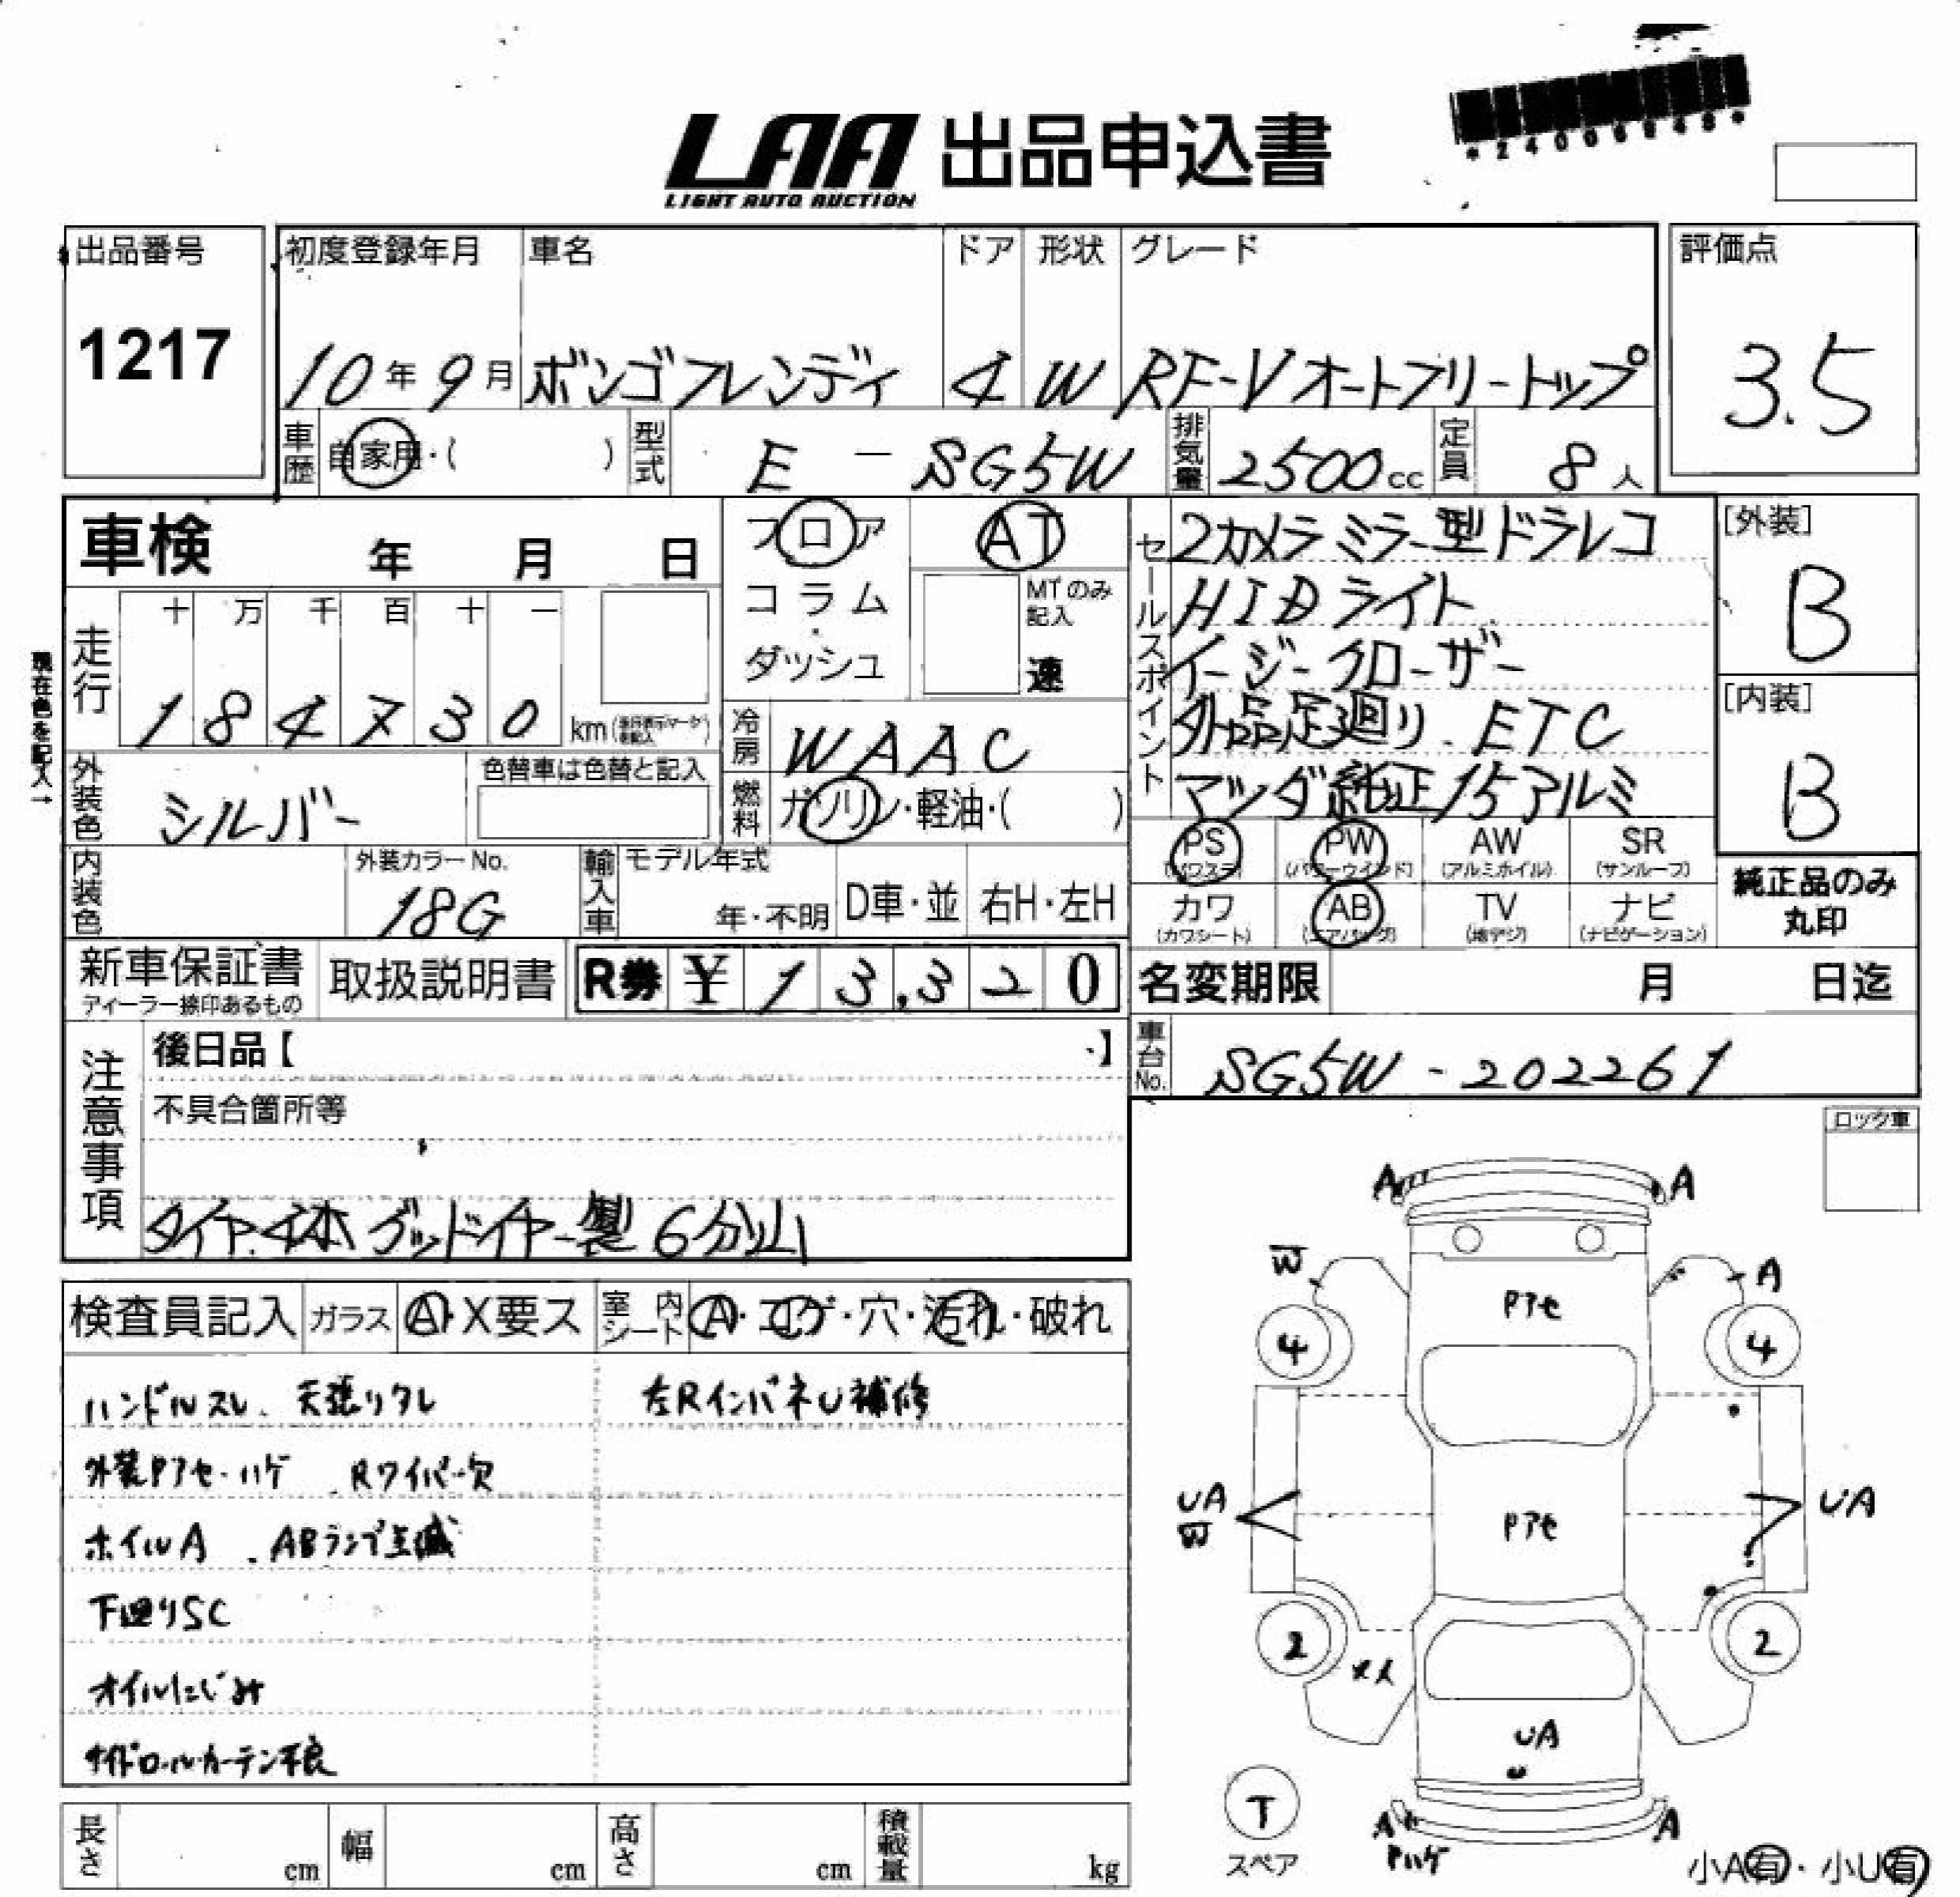 *24006848*
LAA 出品申込書
LIGHT AUTO AUCTION
出品番号
1217
初度登録年月
10年9月
車名
ボンゴフレンディ
ドア
4
形状
W
グレード
RF-V オートフリートップ
評価点
3.5
車歴
自家用・( )
型式
E - SG5W
排気量
2500cc
定員
8人
車検 年 月 日
フロア
コラム
・
ダッシュ
AT
MTのみ
記入
速
セールスポイント
2カメラ ミラー型ドラレコ
HIDライト
イージークローザー
外品足廻り. ETC
マツダ純正15アルミ
[外装]
B
[内装]
B
現在色を記入→
走行
十 万 千 百 十 一
1 8 4 7 3 0 km
冷房
WAAC
燃料
ガソリン・軽油・( )
外装色
シルバー
色替車は色替と記入
内装色
外装カラーNo.
18G
輸入車
モデル年式
年・不明
D車・並
右H・左H
PS
(パワステ)
PW
(パワーウインド)
AW
(アルミホイル)
SR
(サンルーフ)
カワ
(カワシート)
AB
(エアバッグ)
TV
(地デジ)
ナビ
(ナビゲーション)
純正品のみ
丸印
新車保証書
ディーラー捺印あるもの
取扱説明書
R券 ¥ 1 3,3 2 0
名変期限 月 日迄
車台No.
SG5W - 202261
注意事項
後日品【 】
不具合箇所等
タイヤ.4本 グッドイヤー製 6分山
ロック車
検査員記入
ガラス
A・X要ス
室内シート
A・コゲ・穴・汚れ・破れ
ハンドルスレ. 天張りタレ
左RインパネU補修
外装Pアセ・ハゲ .Rワイパー欠
ホイルA .ABランプ点滅
下回りSC
オイルにじみ
サイドロールカーテン不良
長さ cm
幅 cm
高さ cm
積載量 kg
A A
W A
Pアセ
4 4
UA
W
Pアセ
UA
2 2
UA
U
T
スペア
A A
Pハゲ
小A有・小U有